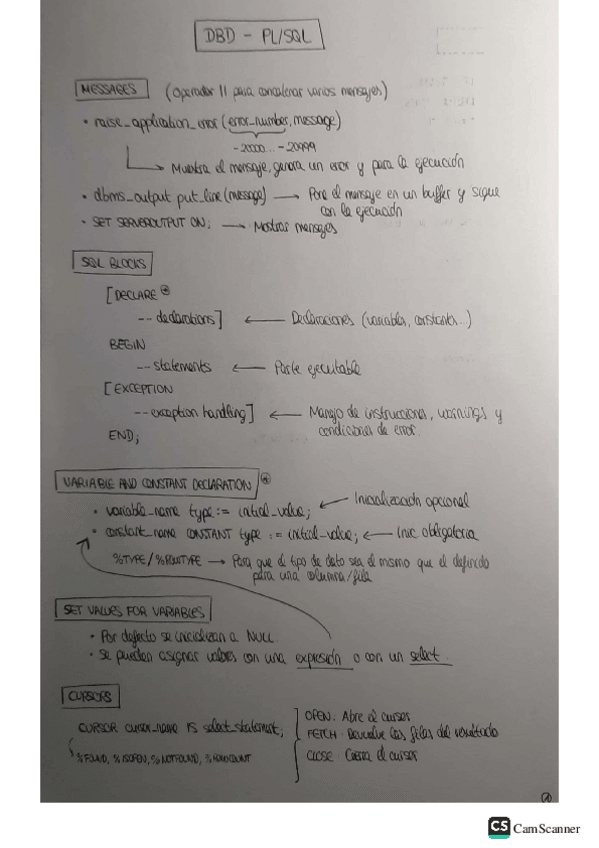 DBD - PL/SQL
MESSAGES (Operador || para concatenar varios mensajes)
• raise_application_error (error_number, message)
-20000... -20999
Muestra el mensaje, genera un error y para la ejecución
• dbms_output put_line (message) → Pone el mensaje en un buffer y sigue
con la ejecución
• SET SERVEROUTPUT ON; → Mostrar mensajes
SQL BLOCKS
[DECLARE *
-- declarations] ← Declaraciones (variables, constantes...)
BEGIN
-- statements ← Parte ejecutable
[EXCEPTION
-- exception handling] ← Manejo de instrucciones, warnings y
END; condiciones de error.
VARIABLE AND CONSTANT DECLARATION *
• variable_name type := initial_value; ← Inicialización opcional
• constant_name CONSTANT type := initial_value; ← Inic obligatoria
%TYPE / %ROWTYPE → Para que el tipo de dato sea el mismo que el definido
para una columna/fila
SET VALUES FOR VARIABLES
• Por defecto se inicializan a NULL.
• Se pueden asignar valores con una expresión o con un select.
CURSORS
CURSOR cursor_name IS select_statement;
%FOUND, %ISOPEN, %NOTFOUND, %ROWCOUNT
OPEN: Abre el cursor
FETCH: Devuelve las filas del resultado
CLOSE: Cierra el cursor
CS CamScanner